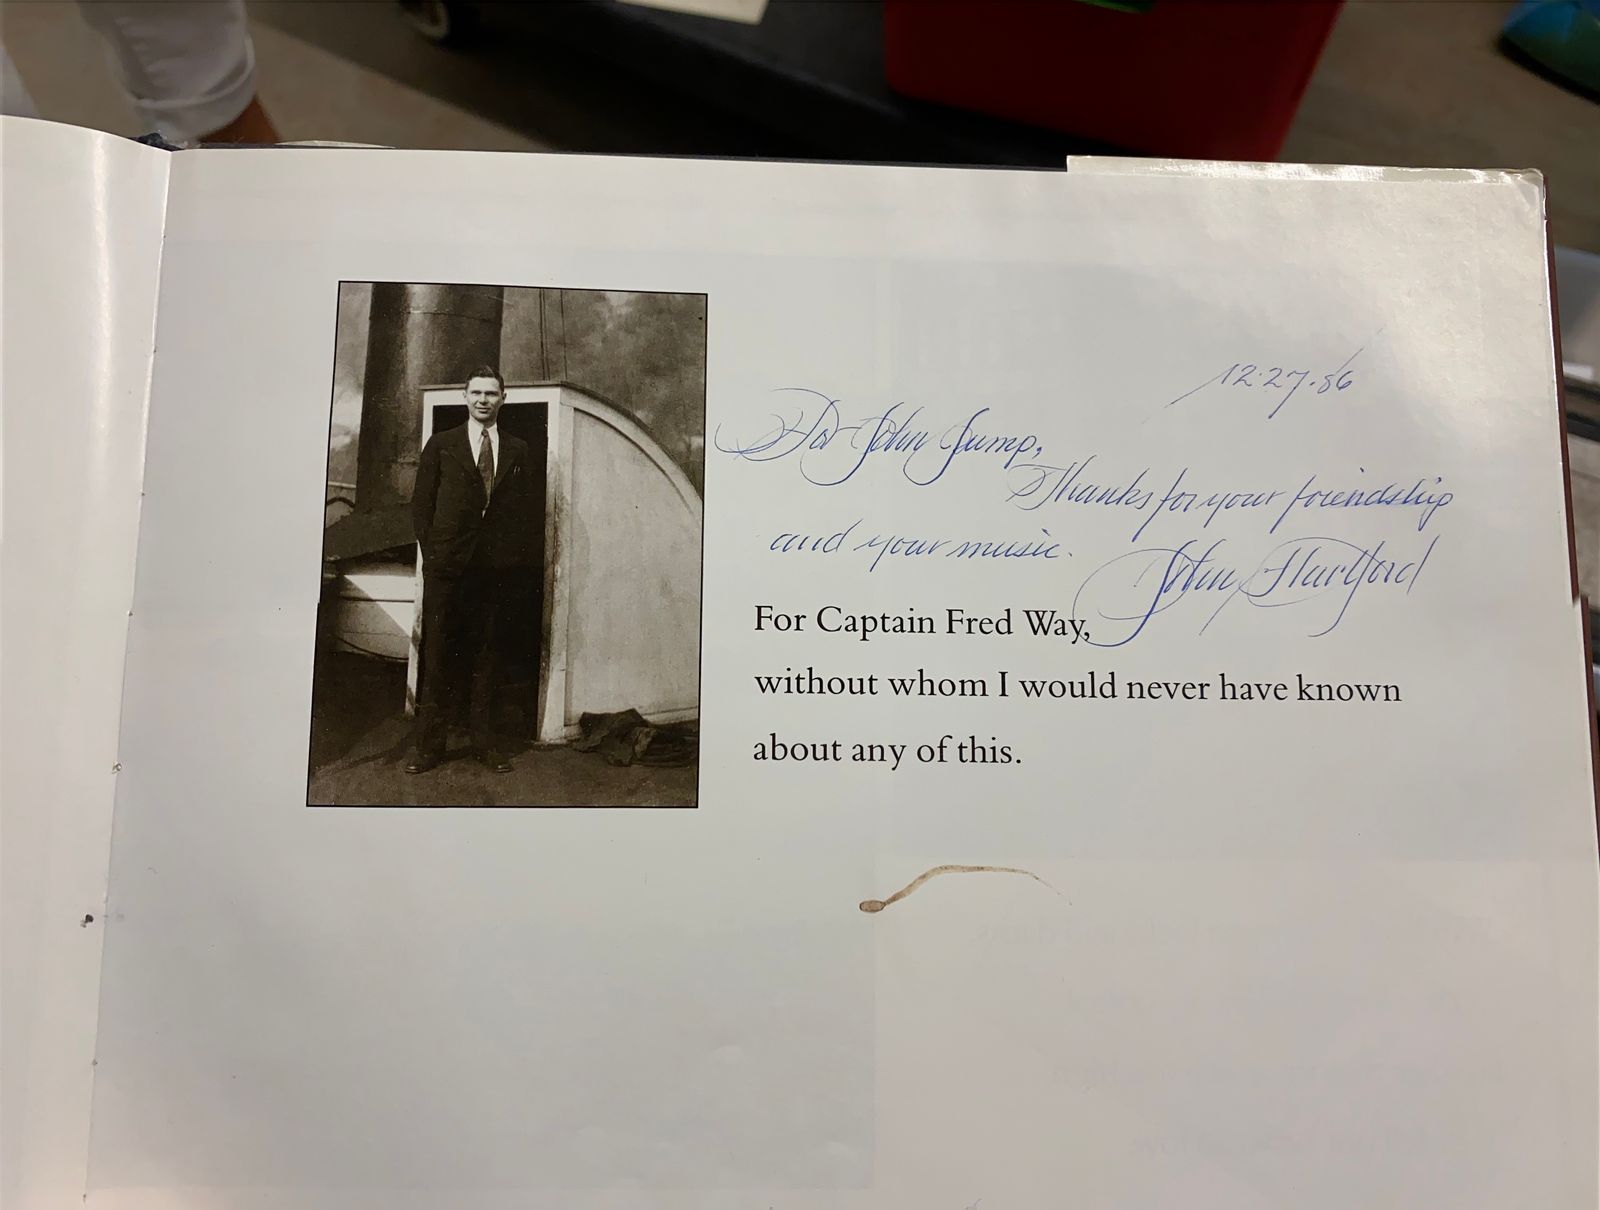 12.27.86
For John Jump,
Thanks for your friendship
and your music.
John Hartford
For Captain Fred Way,
without whom I would never have known
about any of this.